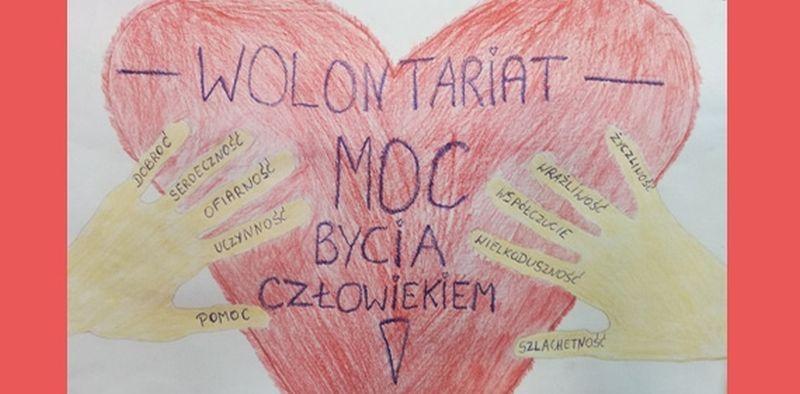 — WOLONTARIAT —
MOC
BYCIA
CZŁOWIEKIEM
!
DOBROĆ
SERDECZNOŚĆ
OFIARNOŚĆ
UCZYNNOŚĆ
POMOC
ŻYCZLIWOŚĆ
WRAŻLIWOŚĆ
WSPÓŁCZUCIE
WIELKODUSZNOŚĆ
SZLACHETNOŚĆ